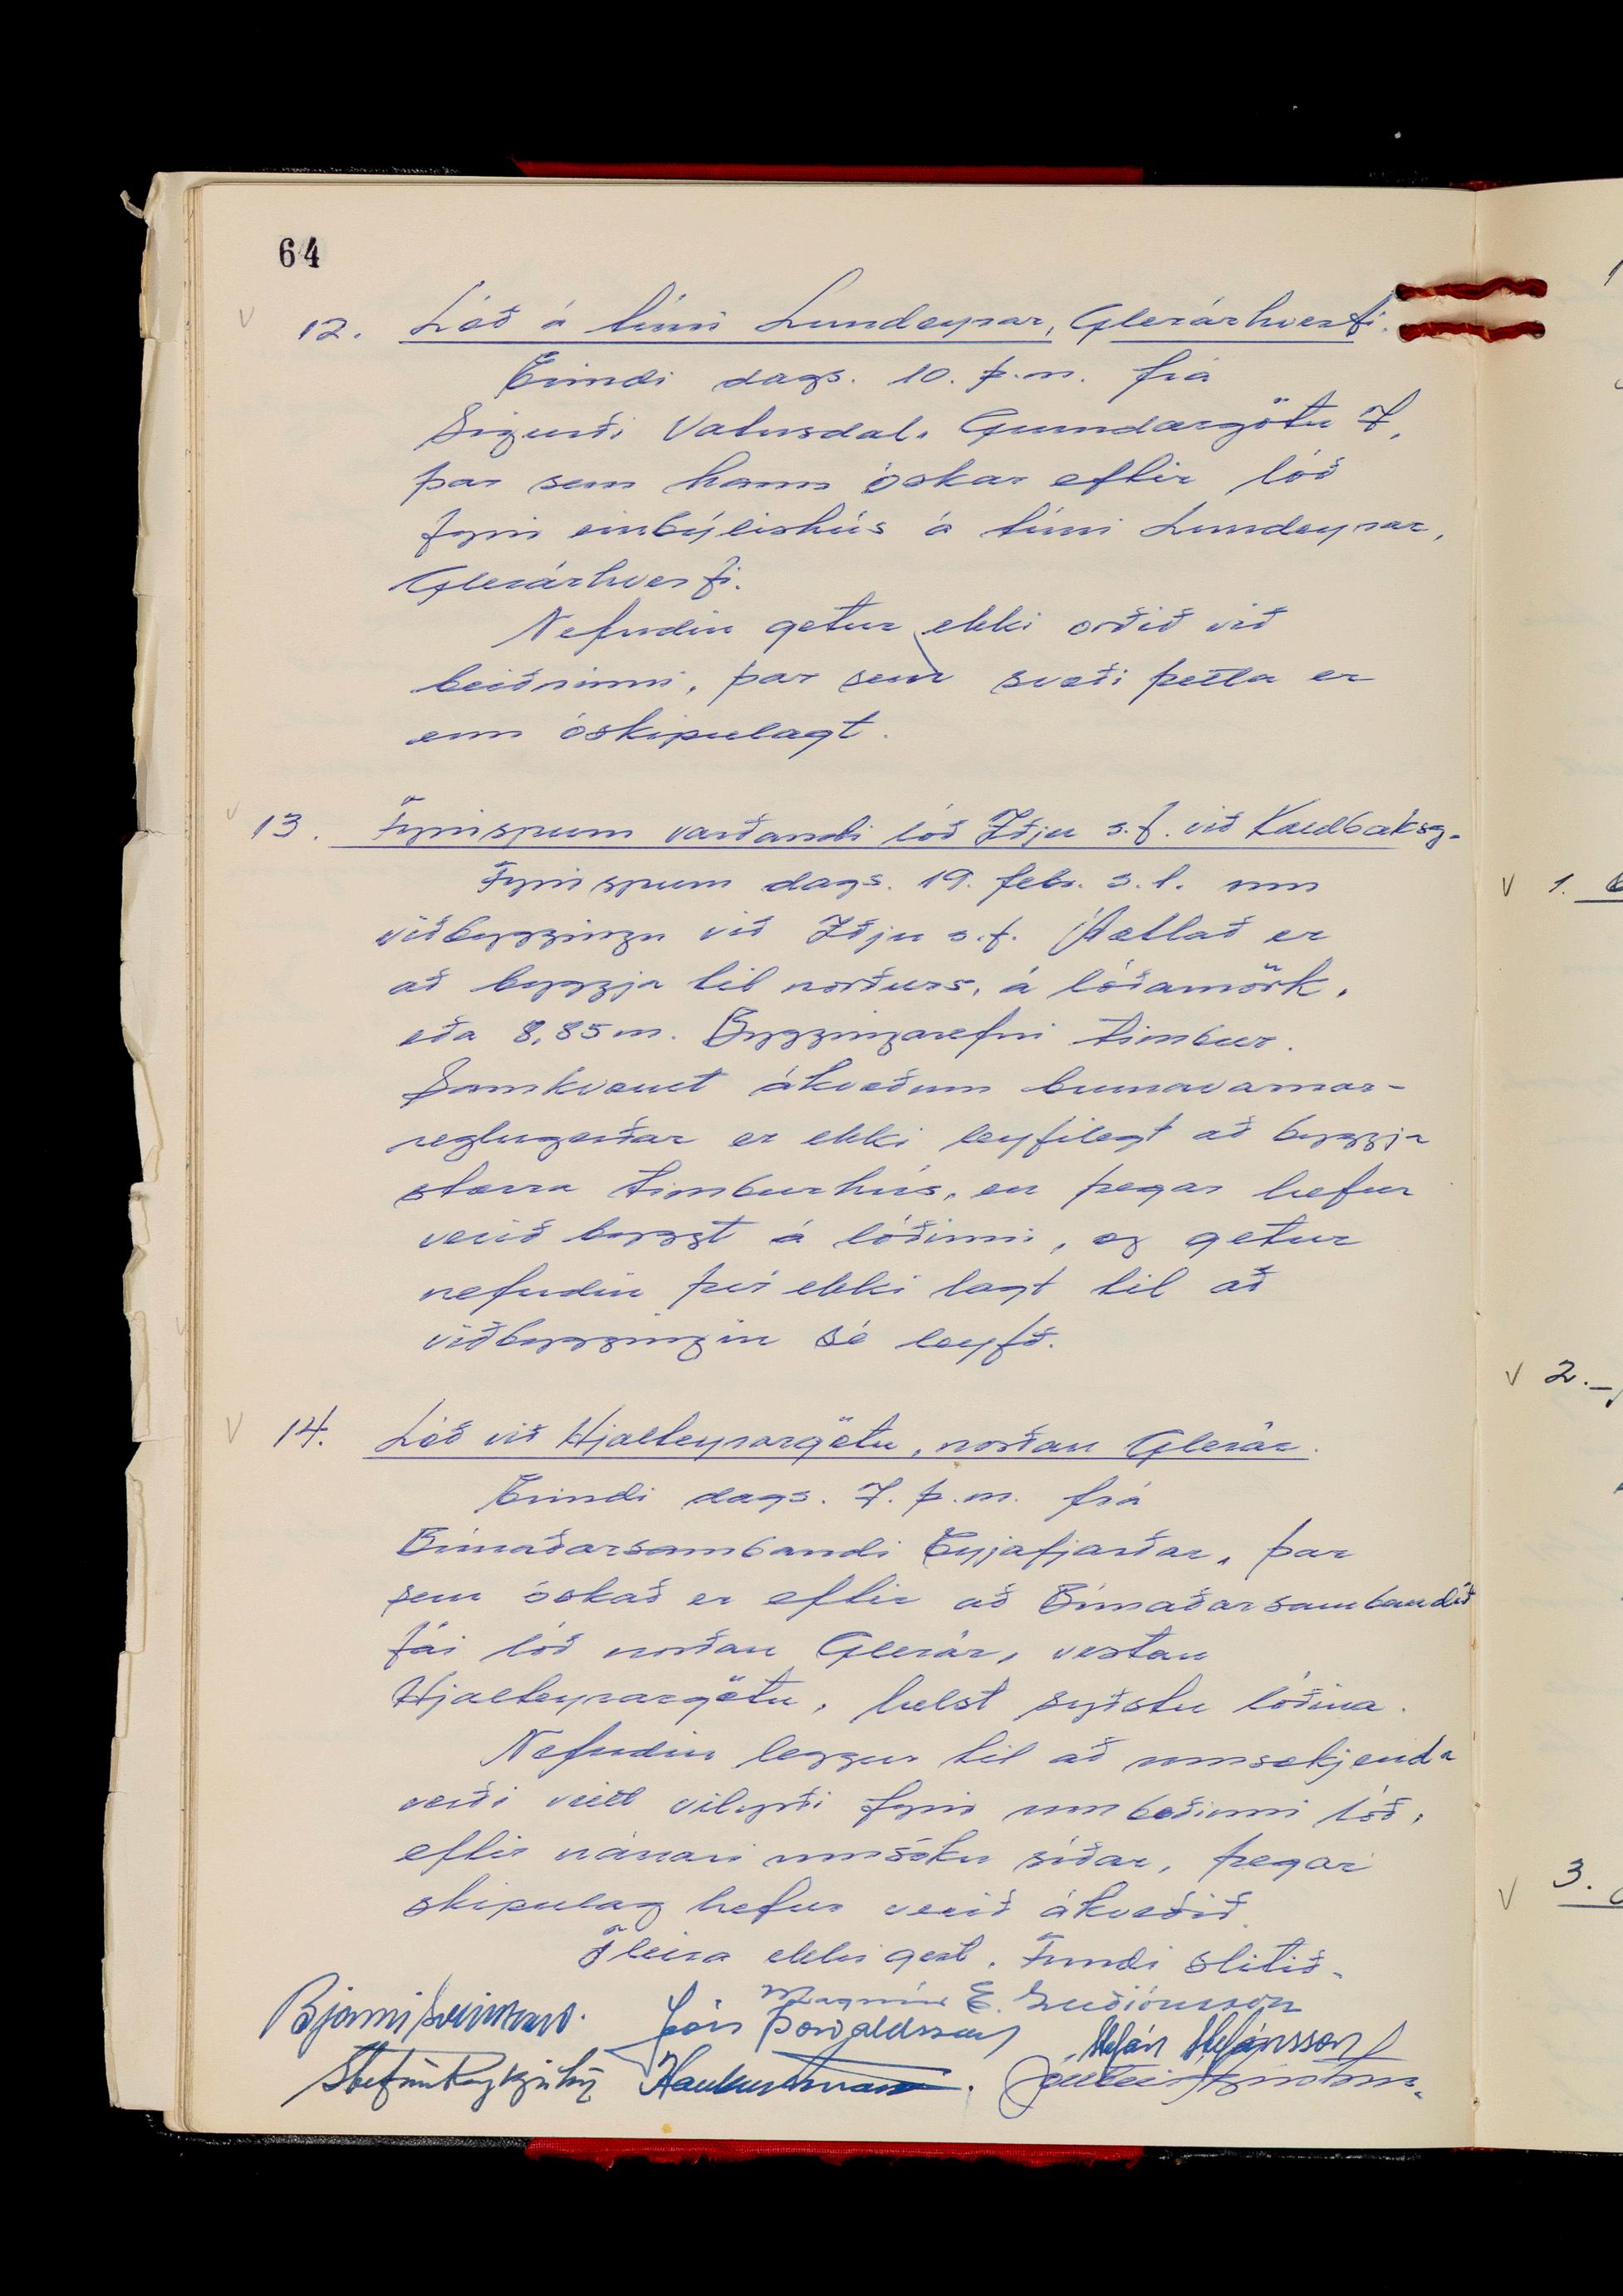 64
12. Lóð á túni Lundeyrar, Glerárhverfi.
Erindi dags. 10. þ.m. frá
Sigurði Vatnsdal, Grundargötu 7,
þar sem hann óskar eftir lóð
fyrir einbýlishús á túni Lundeyrar,
Glerárhverfi.
Nefndin getur ekki orðið við
beiðninni, þar sem svæði þetta er
enn óskipulagt.
13. Fyrirspurn varðandi lóð Iðju s.f. við Kaldbaksg.
Fyrirspurn dags. 19. febr. s.l. um
viðbyggingu við Iðju s.f. Áætlað er
að byggja til norðurs, á lóðamörk,
eða 8,85 m. Byggingarefni timbur.
Samkvæmt ákvæðum brunavarnar-
reglugerðar er ekki leyfilegt að byggja
stærra timburhús, en þegar hefur
verið byggt á lóðinni, og getur
nefndin því ekki lagt til að
viðbyggingin sé leyfð.
14. Lóð við Hjalteyrargötu, norðan Glerár.
Erindi dags. 7. þ.m. frá
Búnaðarsambandi Eyjafjarðar, þar
sem óskað er eftir að Búnaðarsambandið
fái lóð norðan Glerár, vestan
Hjalteyrargötu, helst syðstu lóðina.
Nefndin leggur til að umsækjenda
verði veitt vilyrði fyrir umbeðinni lóð,
eftir nánari umsókn síðar, þegar
skipulag hefur verið ákveðið.
Fleira ekki gert. Fundi slitið.
Magnús E. Guðjónsson
Bjarni Sveinsson. Jón Þorvaldsson Stefán Stefánsson
Stefán Reykjalín Haukur Árnason.
V 1.
V 2.
V 3.